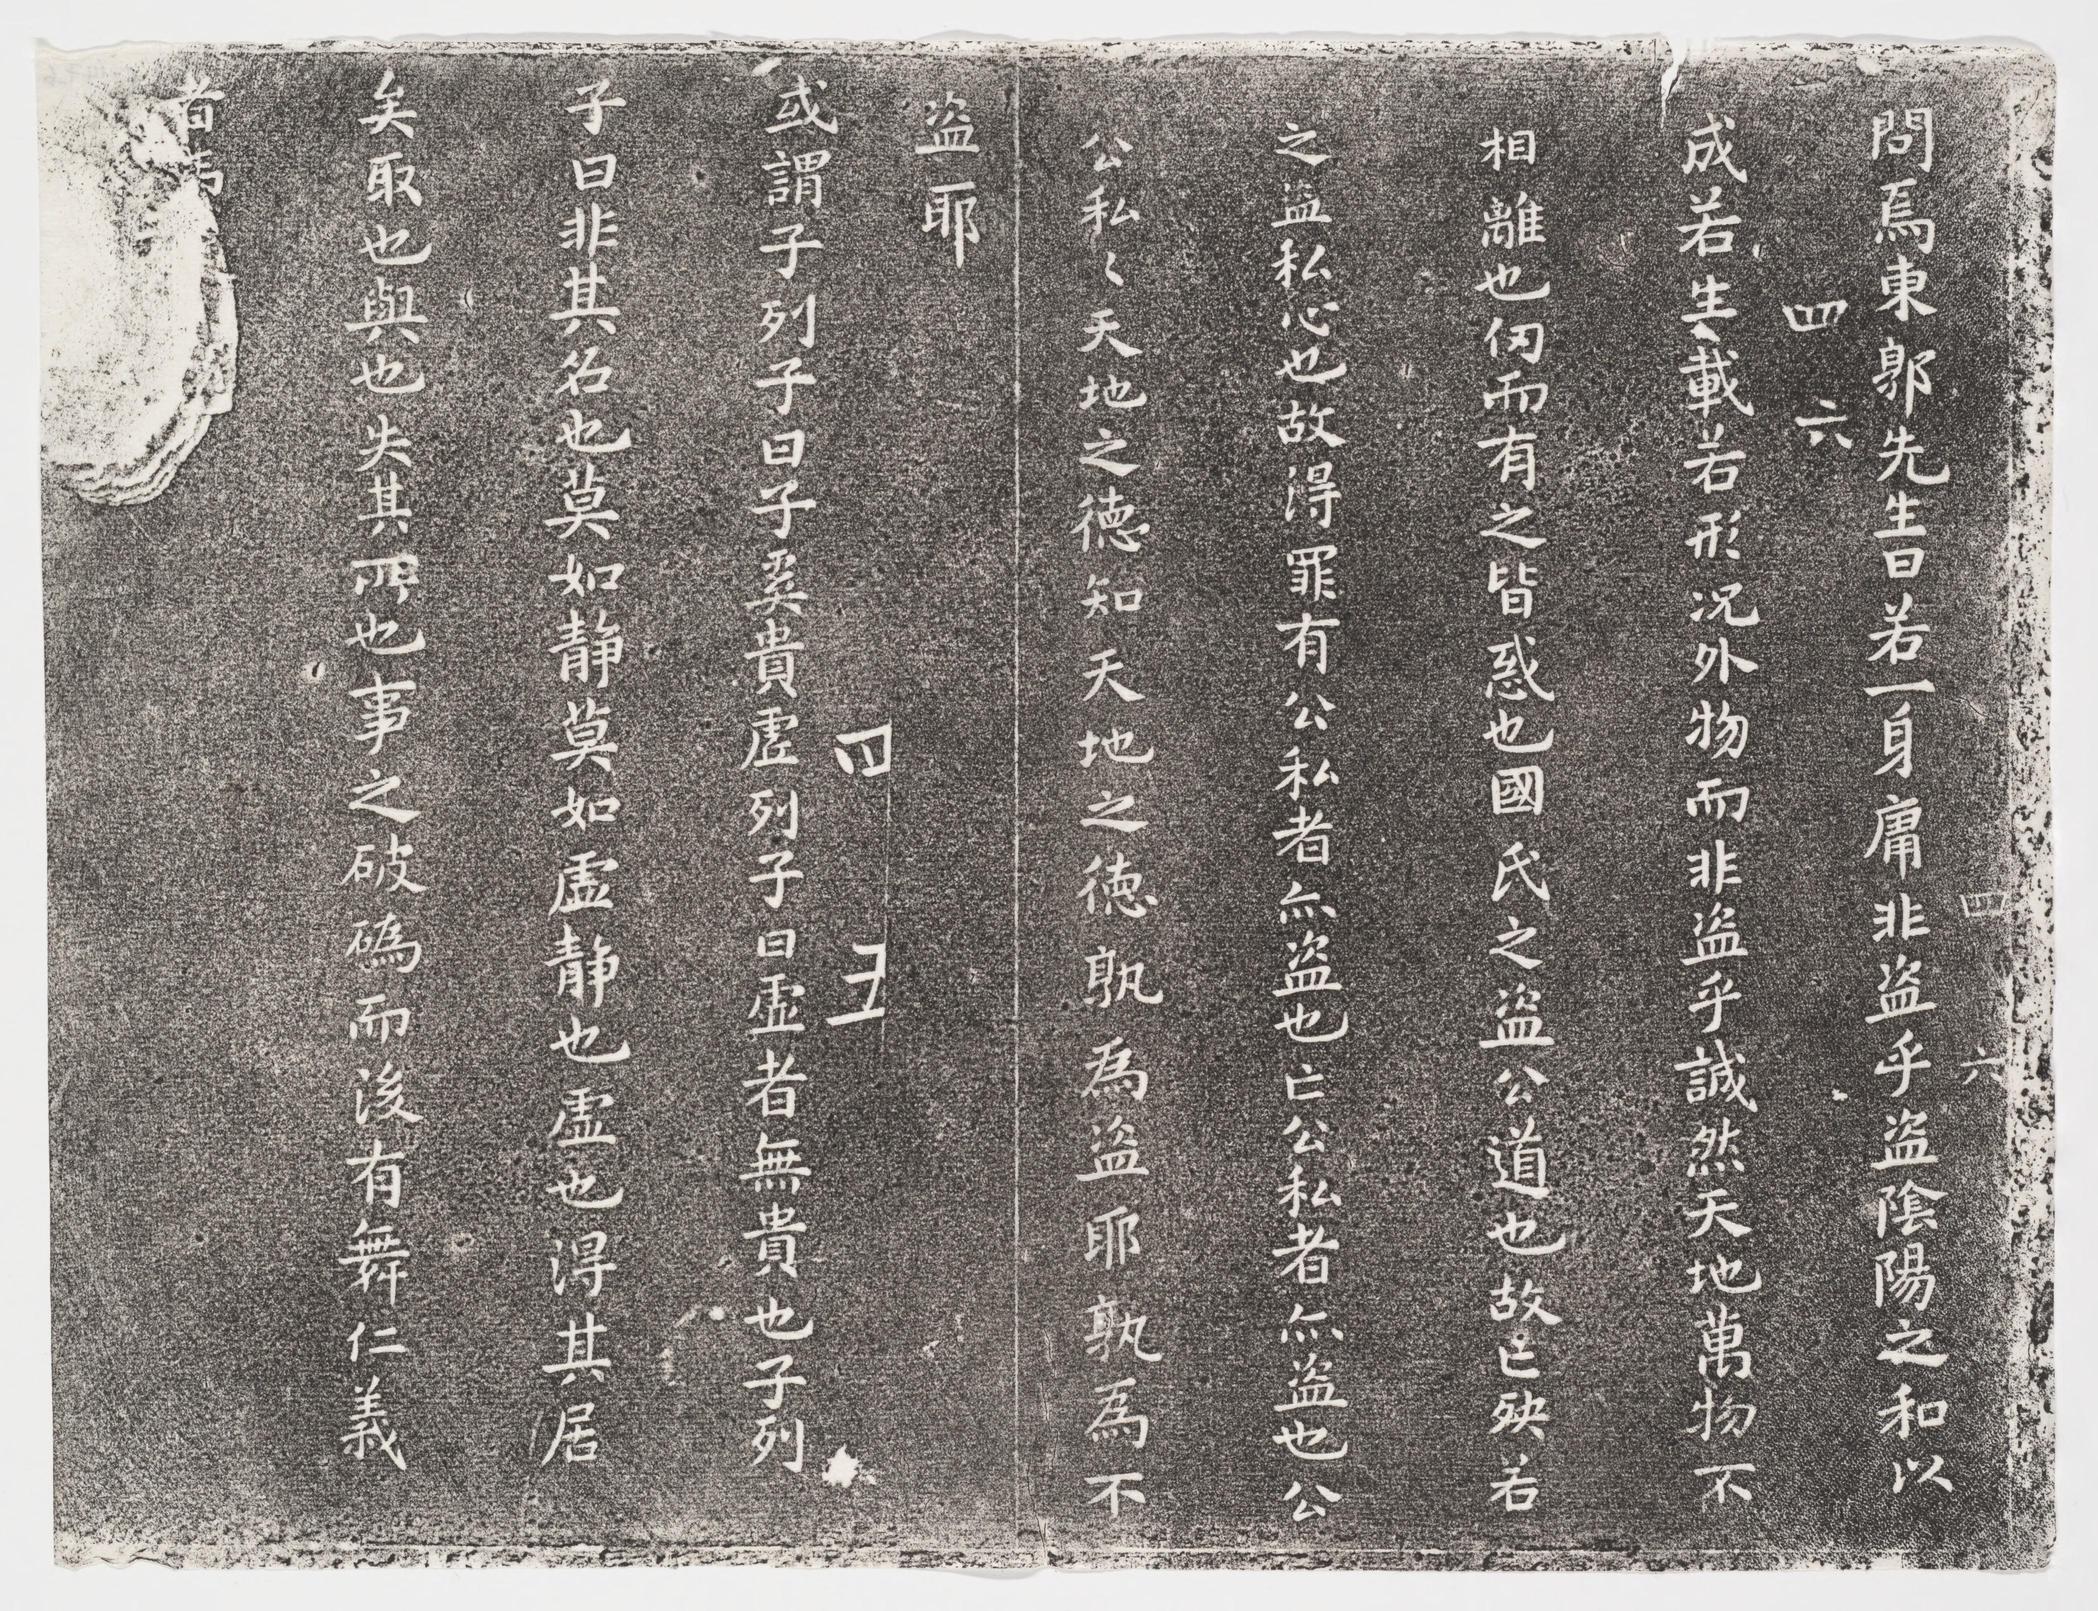 問焉東郭先生曰若一身庸非盗乎盗陰陽之和以
四六
四六
成若生載若形况外物而非盗乎誠然天地萬物不
相離也仞而有之皆惑也國氏之盗公道也故亡殃若
之盗私心也故得罪有公私者亦盗也亡公私者亦盗也公
公私〻天地之德知天地之德孰為盗耶孰為不
盗耶
四五
或謂子列子曰子奚貴虚列子曰虚者無貴也子列
子曰非其名也莫如静莫如虚静也虚也得其居
矣取也與也失其所也事之破䃣而後有舞仁義
者